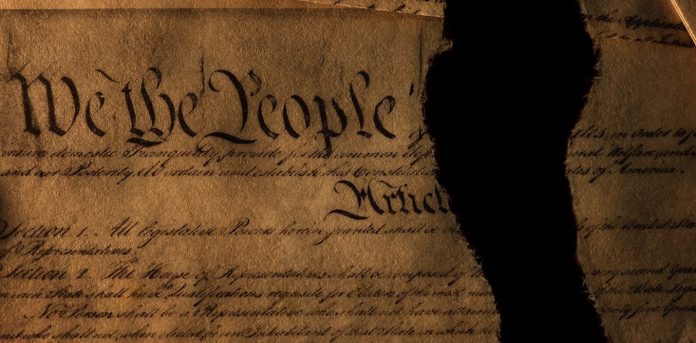 We the People in Order to
insure domestic Tranquility, provide for the common Welfare, and
and our Posterity, do ordain and establish this of America.
Article
Section 1. All legislative Powers herein granted shall be of the United States
of Representatives.
Section 2. The House of Representatives shall be composed of every second Year
in each State shall have Qualifications requisite for Electors of the most the State
No Person shall be a Representative who shall not have attained five
and who shall not, when elected, be an Inhabitant of that State in which